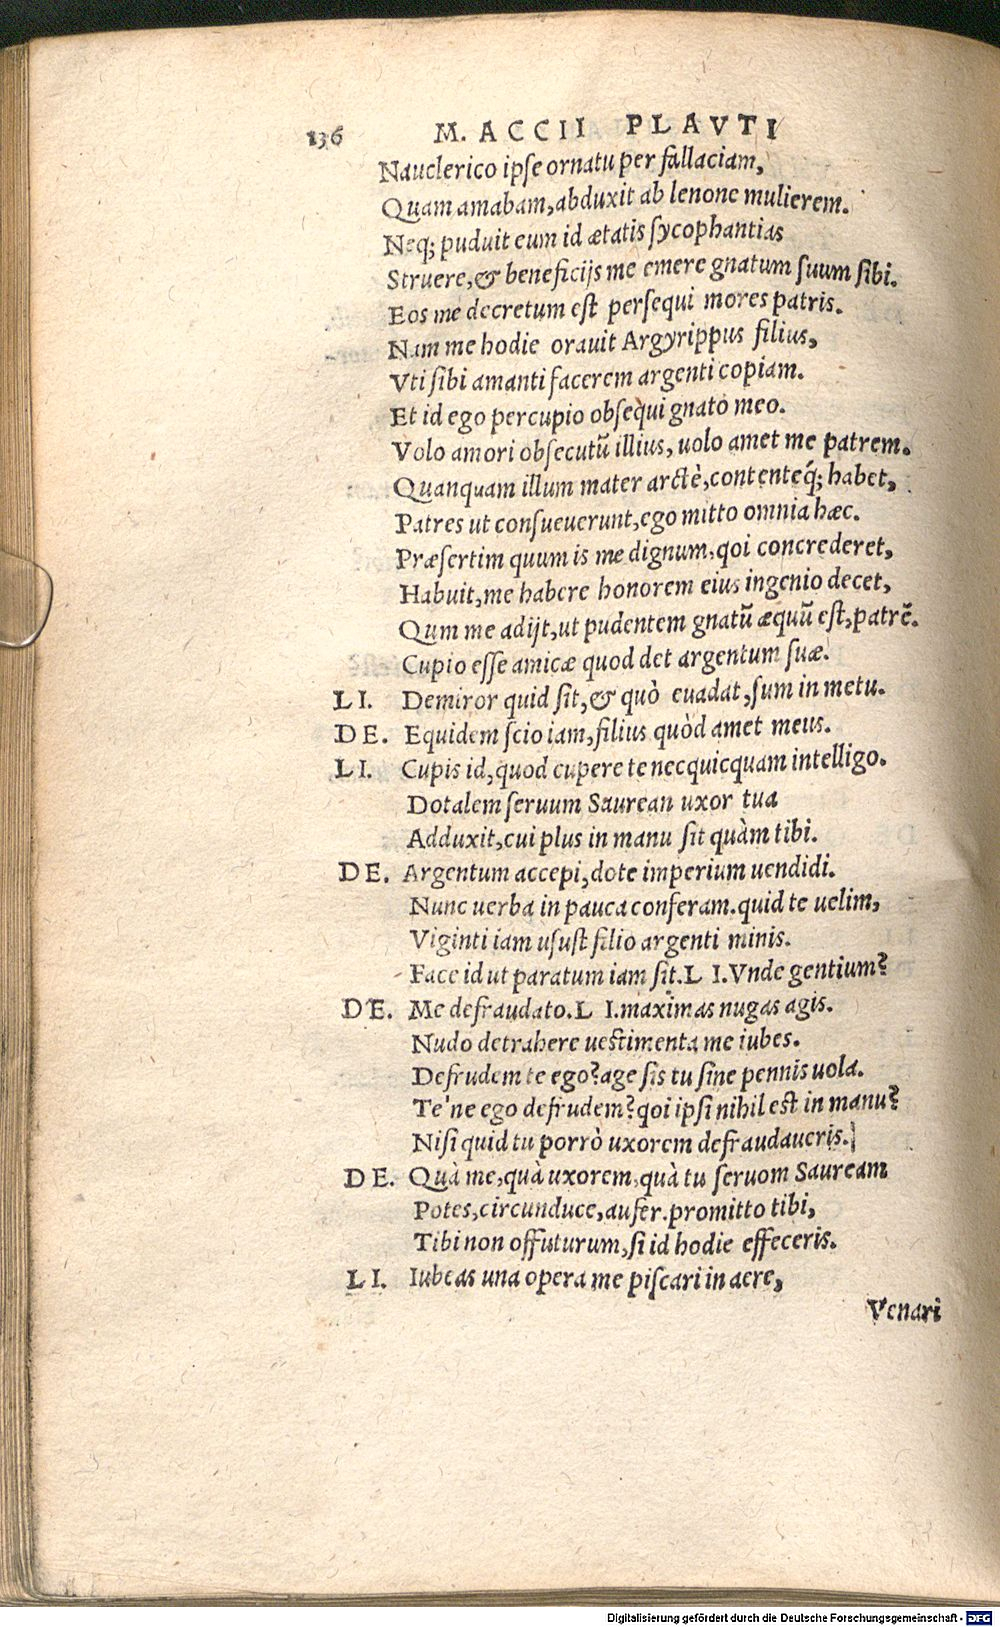 136 M. ACCII PLAVTI
Nauclerico ipse ornatu per fallaciam,
Quam amabam, abduxit ab lenone mulierem.
Neq; puduit eum id ætatis sycophantias
Struere, & beneficijs me emere gnatum suum sibi.
Eos me decretum est persequi mores patris.
Nam me hodie orauit Argyrippus filius,
Vti sibi amanti facerem argenti copiam.
Et id ego percupio obsequi gnato meo.
Volo amori obsecutū illius, uolo amet me patrem.
Quanquam illum mater arctè, contenteq́; habet,
Patres ut consueuerunt, ego mitto omnia hæc.
Præsertim quum is me dignum, qoi concrederet,
Habuit, me habere honorem eius ingenio decet,
Qum me adijt, ut pudentem gnatū æquū est, patrē.
Cupio esse amicæ quod det argentum suæ.
LI. Demiror quid sit, & quò euadat, sum in metu.
DE. Equidem scio iam, filius quòd amet meus.
LI. Cupis id, quod cupere te necquicquam intelligo.
Dotalem seruum Saurean uxor tua
Adduxit, cui plus in manu sit quàm tibi.
DE. Argentum accepi, dote imperium uendidi.
Nunc uerba in pauca conferam. quid te uelim,
Viginti iam usust filio argenti minis.
Face id ut paratum iam sit. LI. Vnde gentium?
DE. Me defraudato. LI. maximas nugas agis.
Nudo detrahere uestimenta me iubes.
Defrudem te ego? age sis tu sine pennis uola.
Te'ne ego defrudem? qoi ipsi nihil est in manu?
Nisi quid tu porrò uxorem defraudaueris.
DE. Quà me, quà uxorem, quà tu seruom Sauream
Potes, circunduce, aufer. promitto tibi,
Tibi non offuturum, si id hodie effeceris.
LI. Iubeas una opera me piscari in aere,
Venari
Digitalisierung gefördert durch die Deutsche Forschungsgemeinschaft - DFG